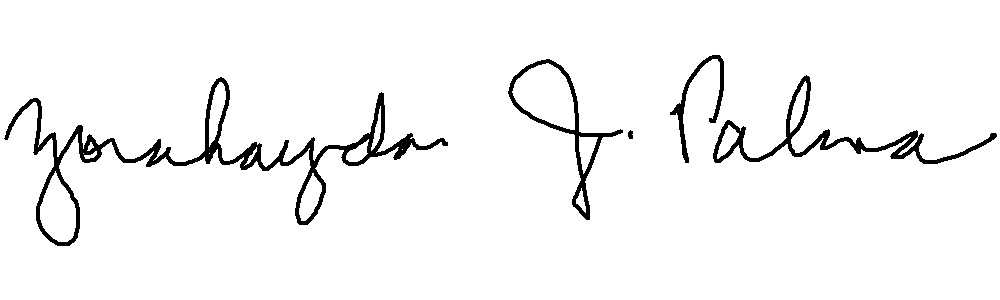 Zorahayda J. Palma